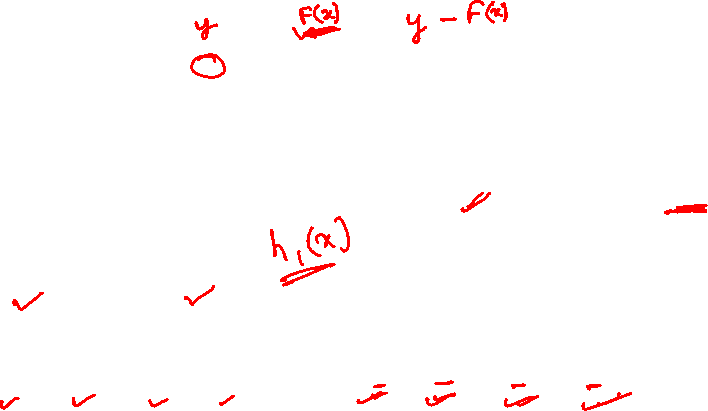 y F(x) y - F(x)
h₁(x)